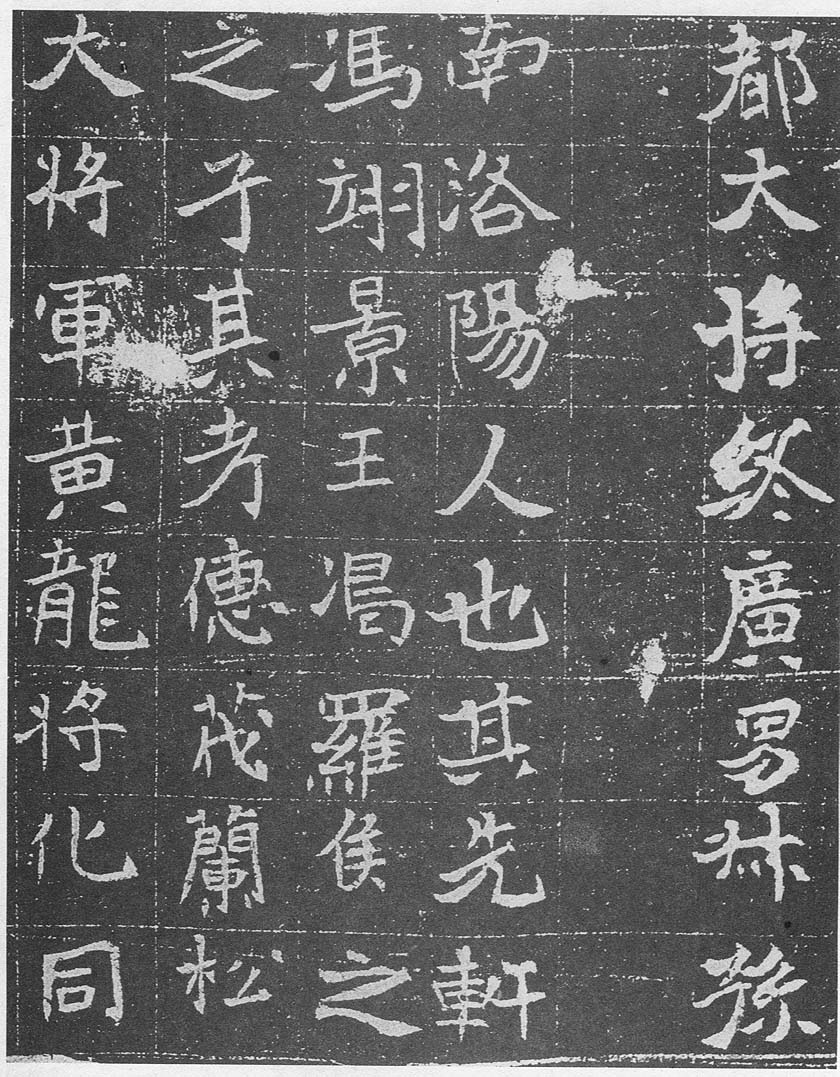 都大将终廣男叔孫
南洛陽人也其先軒
馮翊景王渴羅侯之
之子其考德茂蘭松
大将軍黄龍将化同